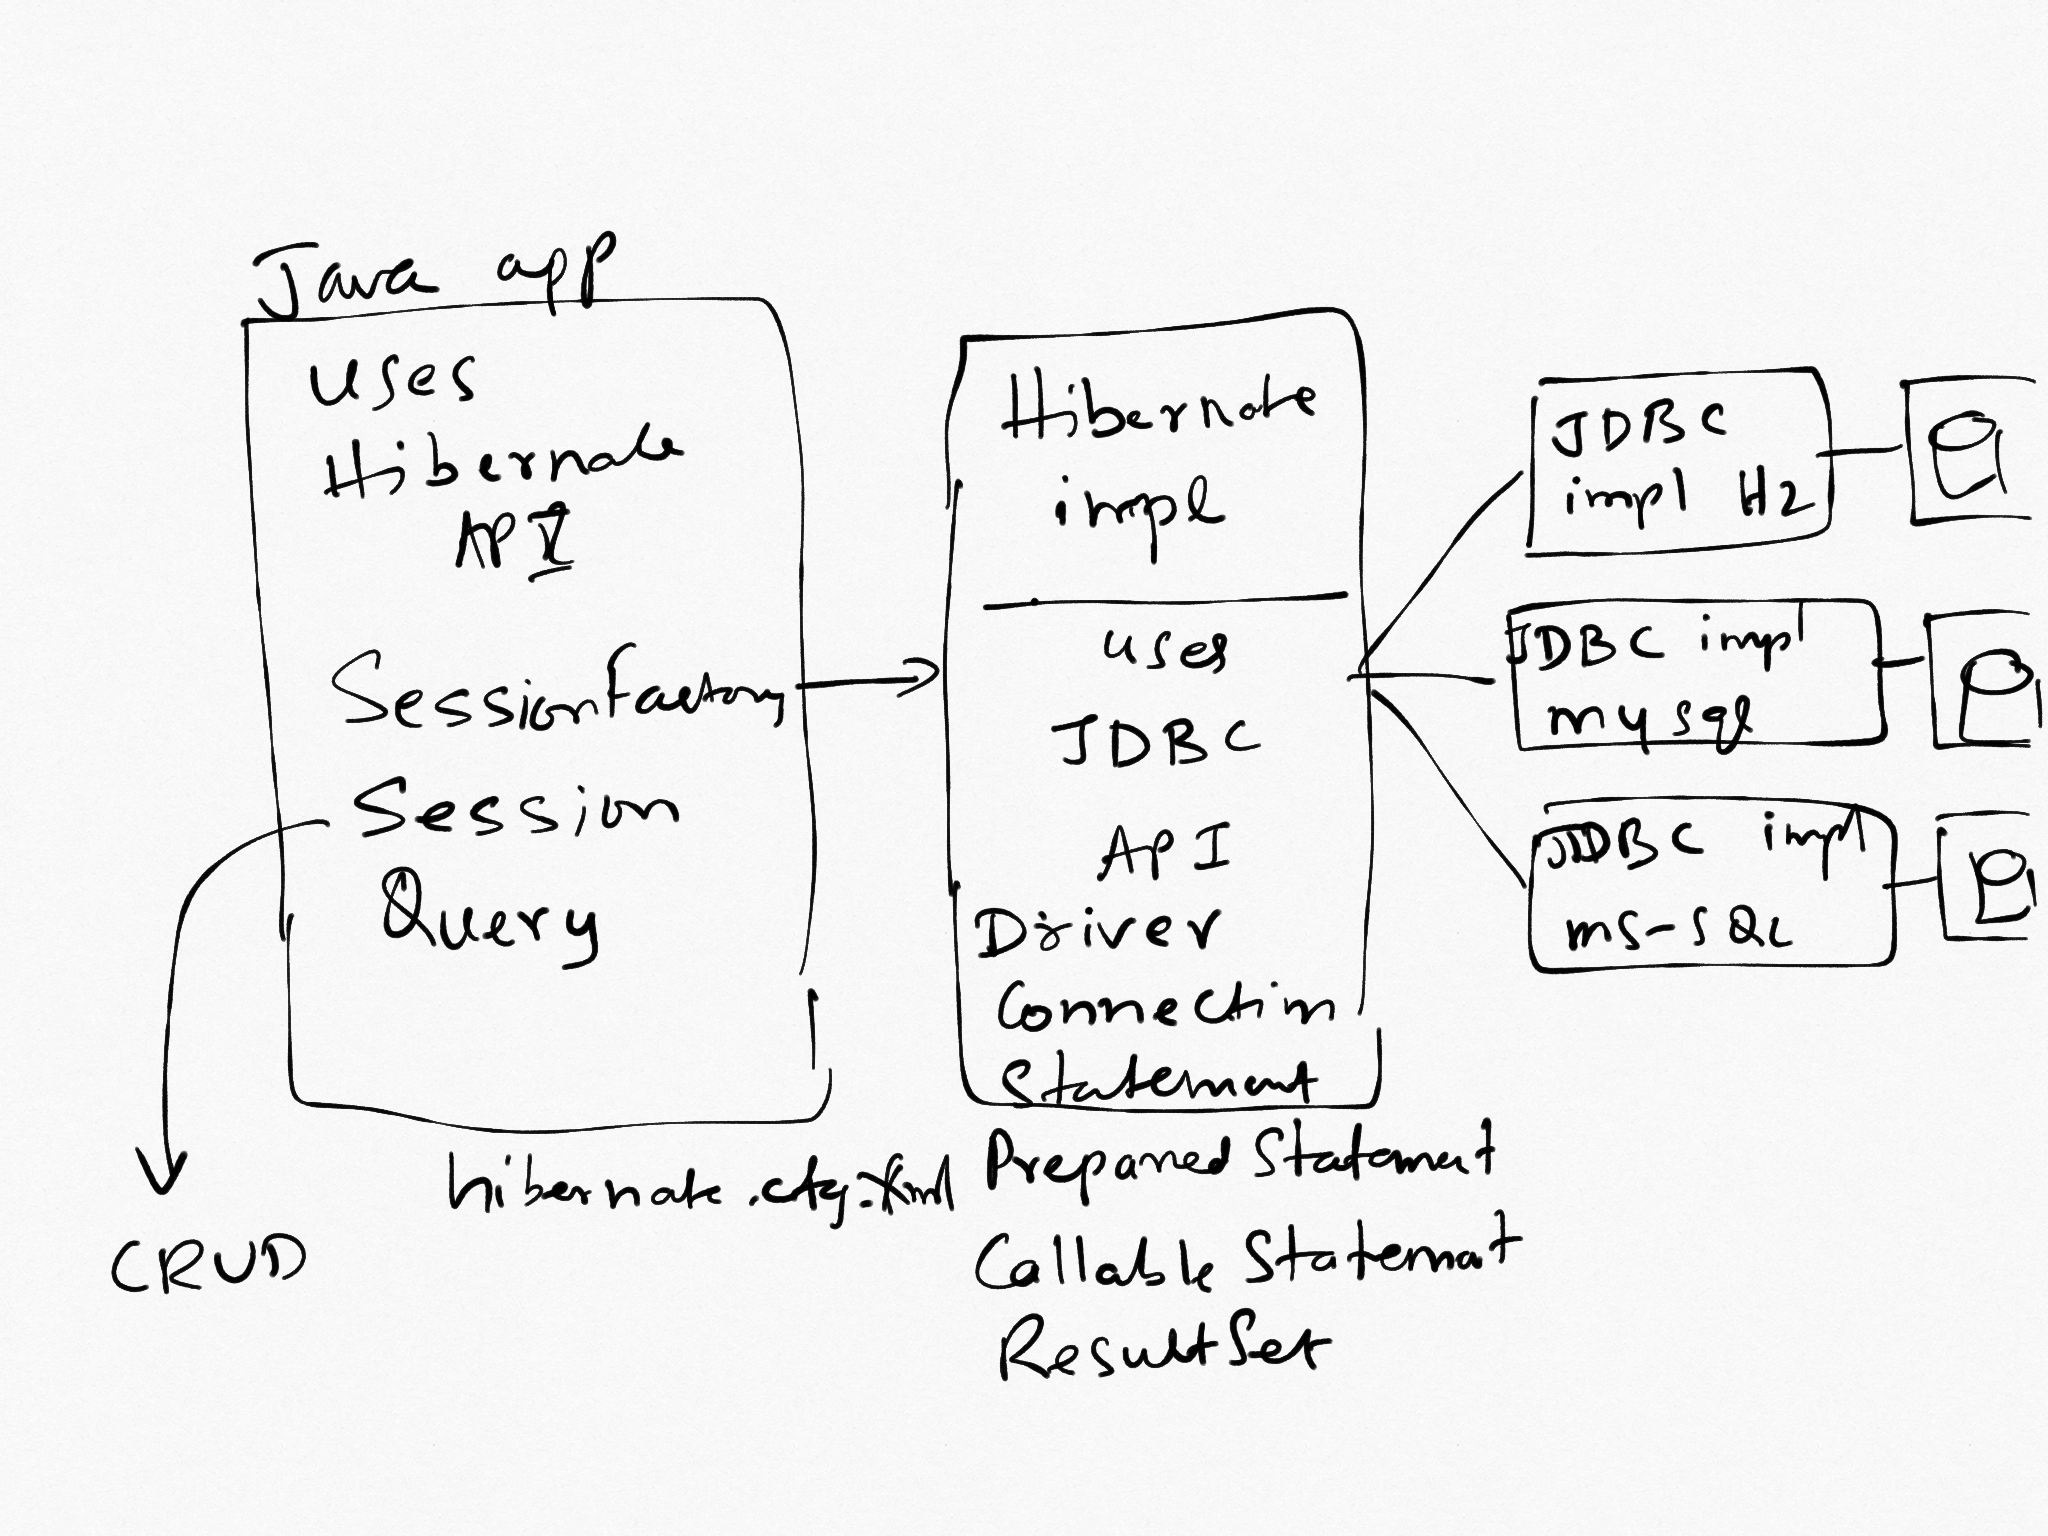 Java app
uses
Hibernate
API
SessionFactory
Session
Query
CRUD
hibernate.cfg.xml
Hibernate
impl
uses
JDBC
API
Driver
Connection
Statement
Prepared Statement
Callable Statement
ResultSet
JDBC
impl H2
JDBC impl
mysql
JDBC impl
ms-SQL